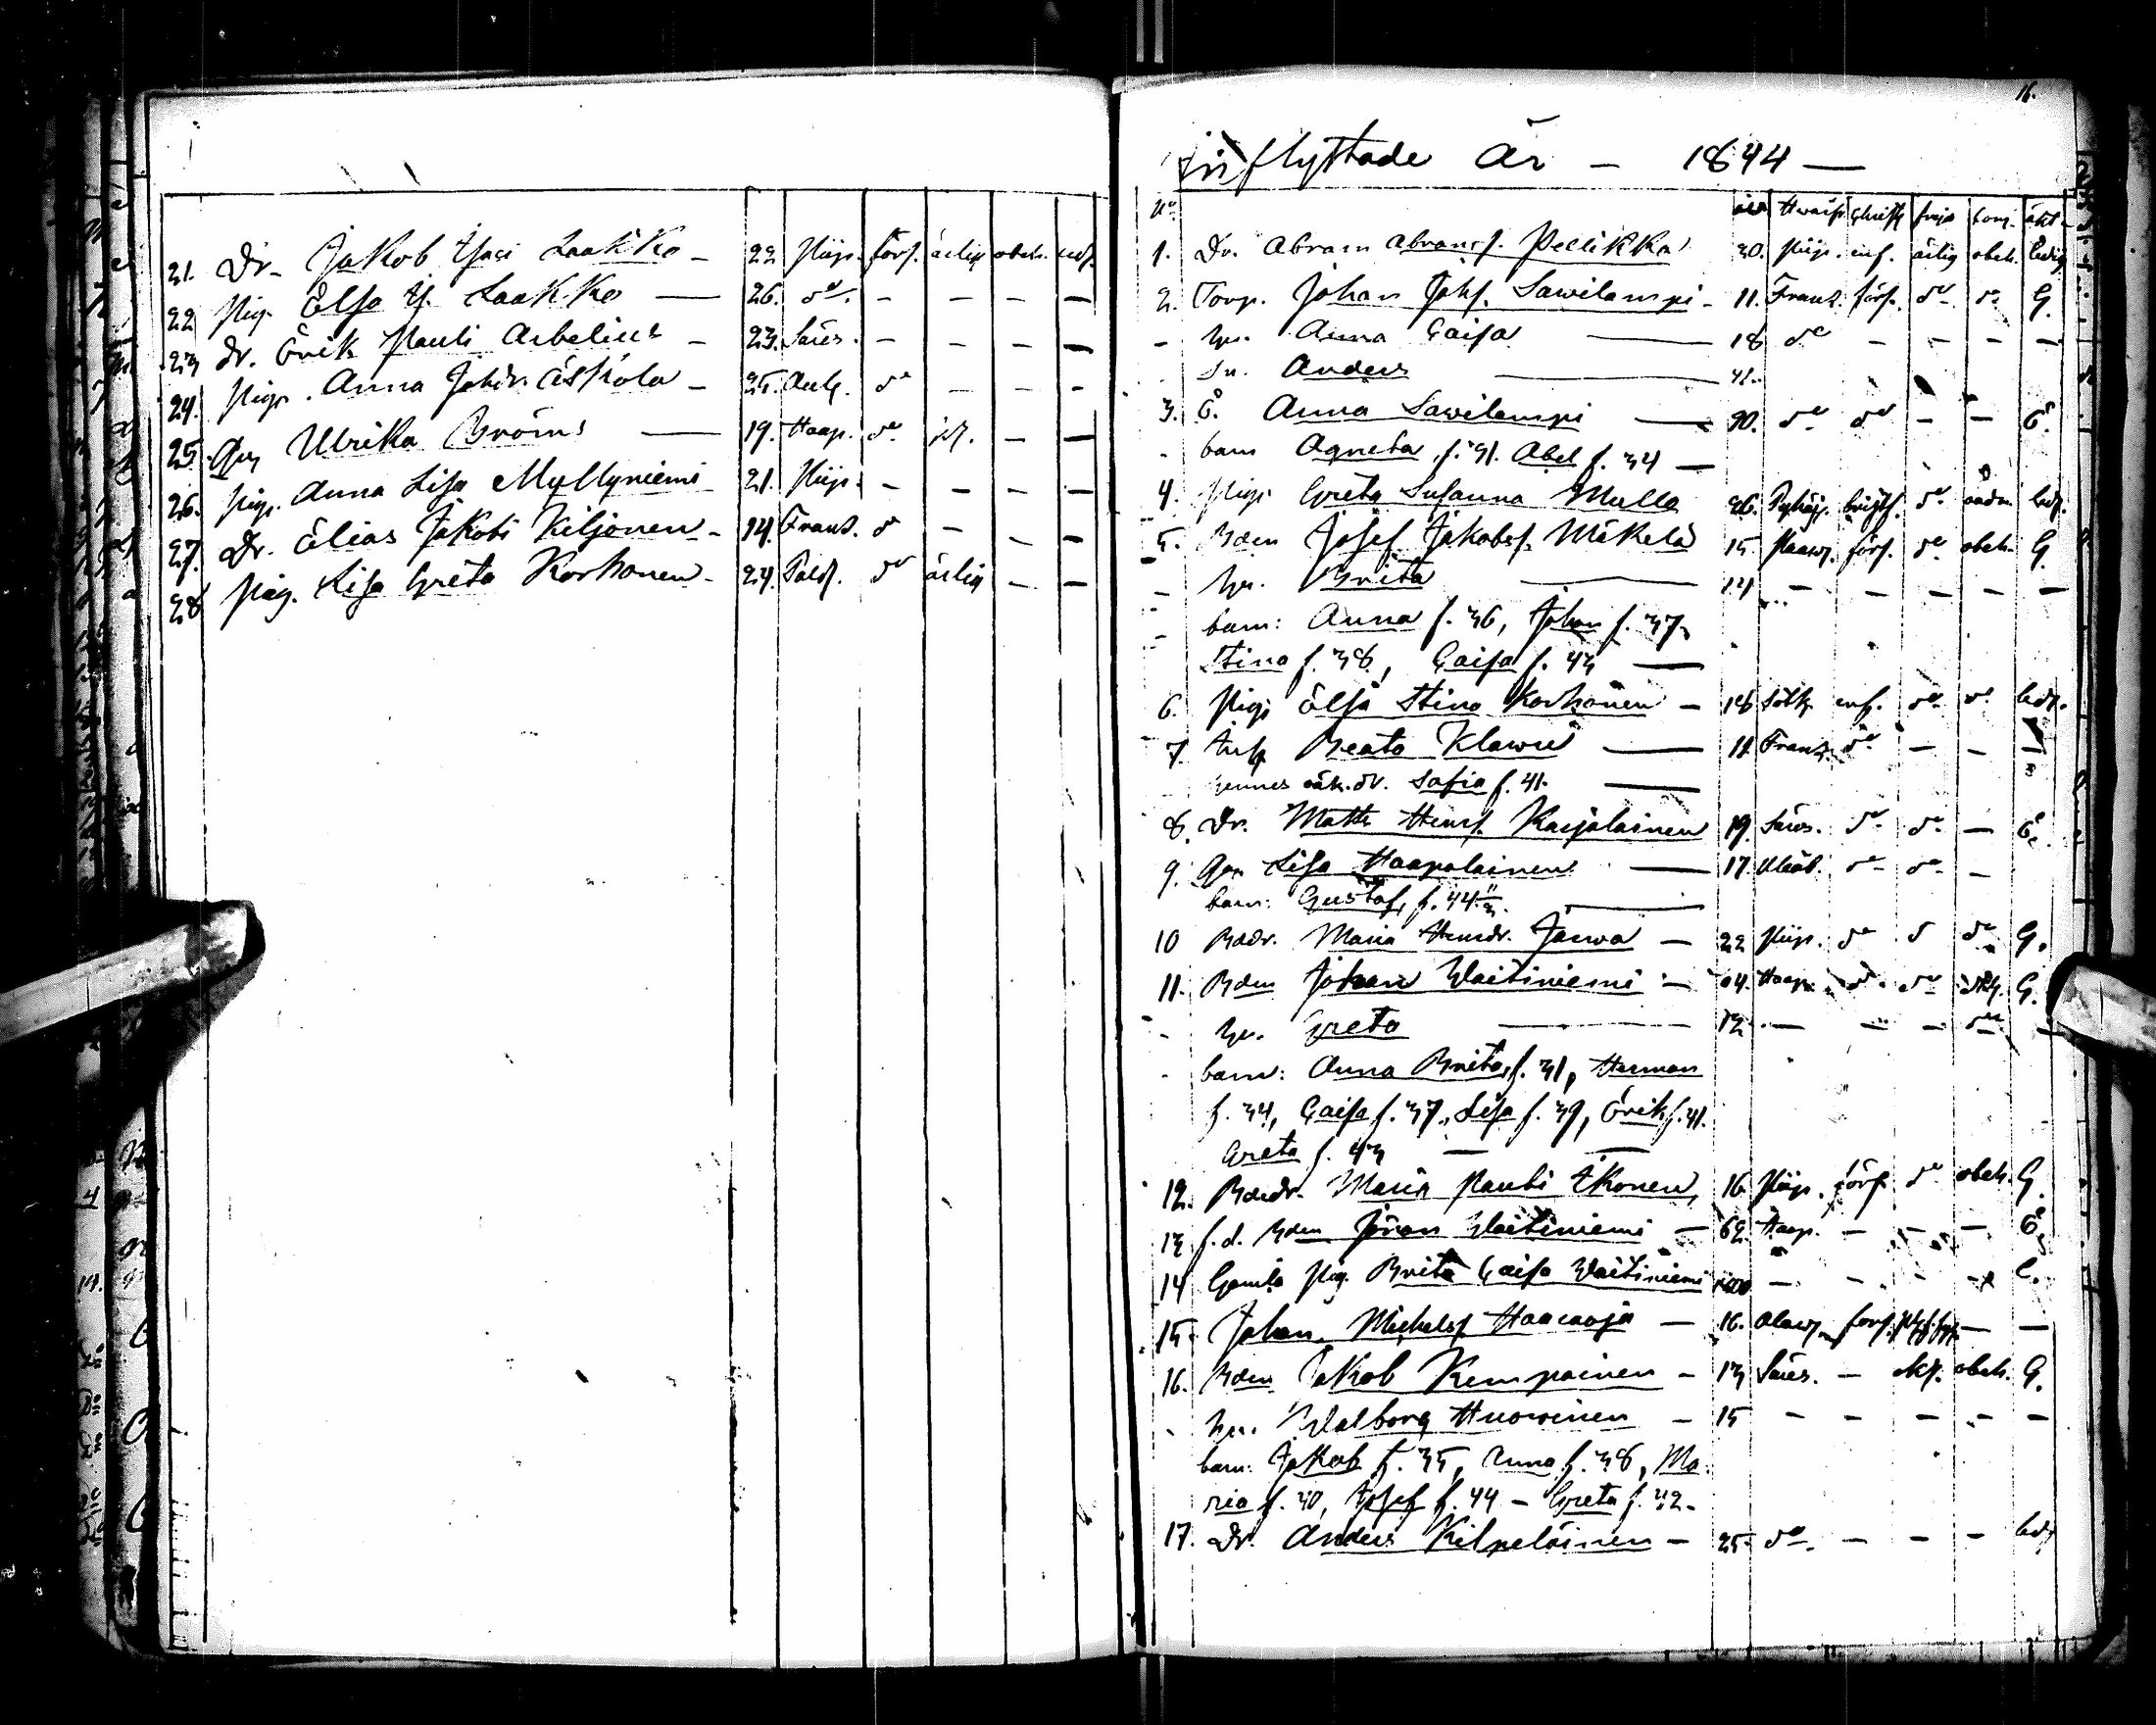 21. Dr. Jakob Isaci Laakko - 22 Piip. förs. ärlig obeh. led.
22 Pig. Elsa Is. Laakko - 26. do. - - - -
23 dr. Erik Pauli Arbelius - 23. Säres. - - - -
24. Pig. Anna Johdr. Eskola - 25. do - - -
25. Ulrika Broms - 19. Haap. do - -
26. Pig. Anna Lisa Myllyniemi 21. Piip. - - - -
27. Dr. Elias Jakobi Kiljonen - 14. Frants. do - - -
28 Pig. Lisa Greta Korhonen - 24. do ärlig - -
16.
Inflyttade År - 1844 -
No
1. Dr. Abram Abramss. Pellikka 20. Piip. inf. ärlig obeh. ledig
2. Torp. Johan Johss. Sawilampi - 11. Frants. förs. do do G.
- hu. Anna Caisa - 18 do - - - -
Sn. Anders - 42.
3. E. Anna Sawilampi - 90. do do - - E.
- barn Agneta f. 31. Abel f. 34 -
4. Pig. Greta Susanna Mulla 26. do led.
5. Bden Josef Jakobss. Mäkelä 15 Paaw. förs. do obeh. G.
- hu. Brita - 14 - - - - -
- barn: Anna f. 36, Johan f. 37,
Stina f. 38, Caisa f. 43 -
6. Pig. Elsa Stina Korhonen - 18 inf. do do led.
7. Beata Klawu - 12 Frants. do - - -
hennes oäk. dr. Sofia f. 41. -
8. Dr. Matts Henrs. Karjalainen 19. Säres. do do - E.
9. Lisa Haapalainen - 17. Uleåb. do do -
barn: Gustaf, f. 44 -
10 Bddr. Maria Henrdr. Jänwa - 22 Piip. do d do G.
11. Bden Johan Waitiniemi - 04. Haap. do do G.
- hu. Greta - 12 - - - do -
- barn: Anna Brita f. 31, Herman
f. 34, Caisa f. 37, Lisa f. 39, Erik f. 41.
Greta f. 43 - -
12. Bdedr. Maria Pauli Ikonen, 16 Piip. förs. do obeh. G.
13 f.d. Bden Jöran Waitiniemi - 62 Haap. - - - E.
14 Gamla Pig. Brita Caisa Waitiniemi - - - -
15. Johan Michelss. - 16. förs. - -
16. Bden Jakob Kempainen - 13 Säres. - obeh. G.
- hu. Walborg Huowinen - 15 - - - - -
barn: Jakob f. 35, Anna f. 38, Ma
ria f. 40, Josef f. 44 - Greta f. 42 -
17. Dr. Anders Kilpeläinen - 25. do. - - - led